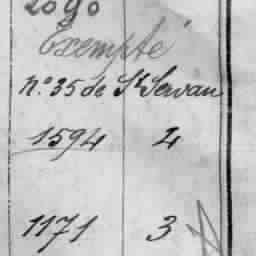 2090
Exempté
n.° 35 de St Servan
1594 4
1171 3